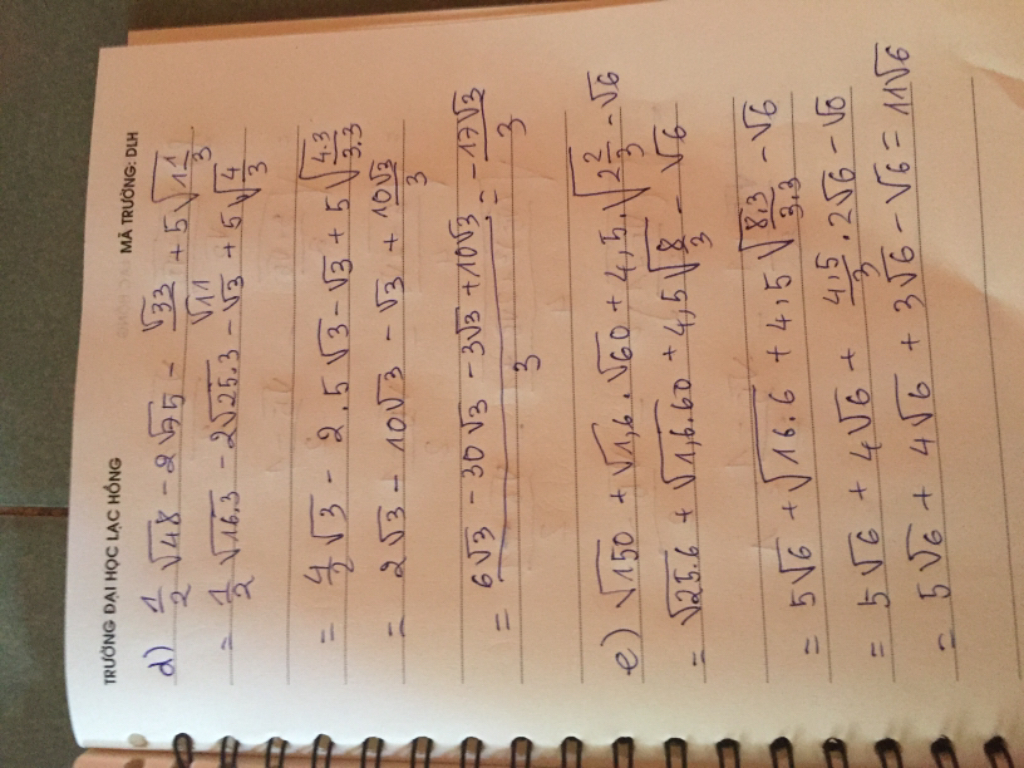 TRƯỜNG ĐẠI HỌC LẠC HỒNG MÃ TRƯỜNG: DLH
d) 1/2 √48 - 2√75 - √33/√11 + 5√(1 1/3)
= 1/2 √16.3 - 2√25.3 - √3 + 5√(4/3)
= 4/2 √3 - 2.5√3 - √3 + 5√(4.3/3.3)
= 2√3 - 10√3 - √3 + 10√3/3
= (6√3 - 30√3 - 3√3 + 10√3)/3 = -17√3/3
e) √150 + √1,6 . √60 + 4,5.√(2 2/3) - √6
= √25.6 + √1,6.60 + 4,5√(8/3) - √6
= 5√6 + √16.6 + 4,5√(8.3/3.3) - √6
= 5√6 + 4√6 + 4,5/3 . 2√6 - √6
= 5√6 + 4√6 + 3√6 - √6 = 11√6